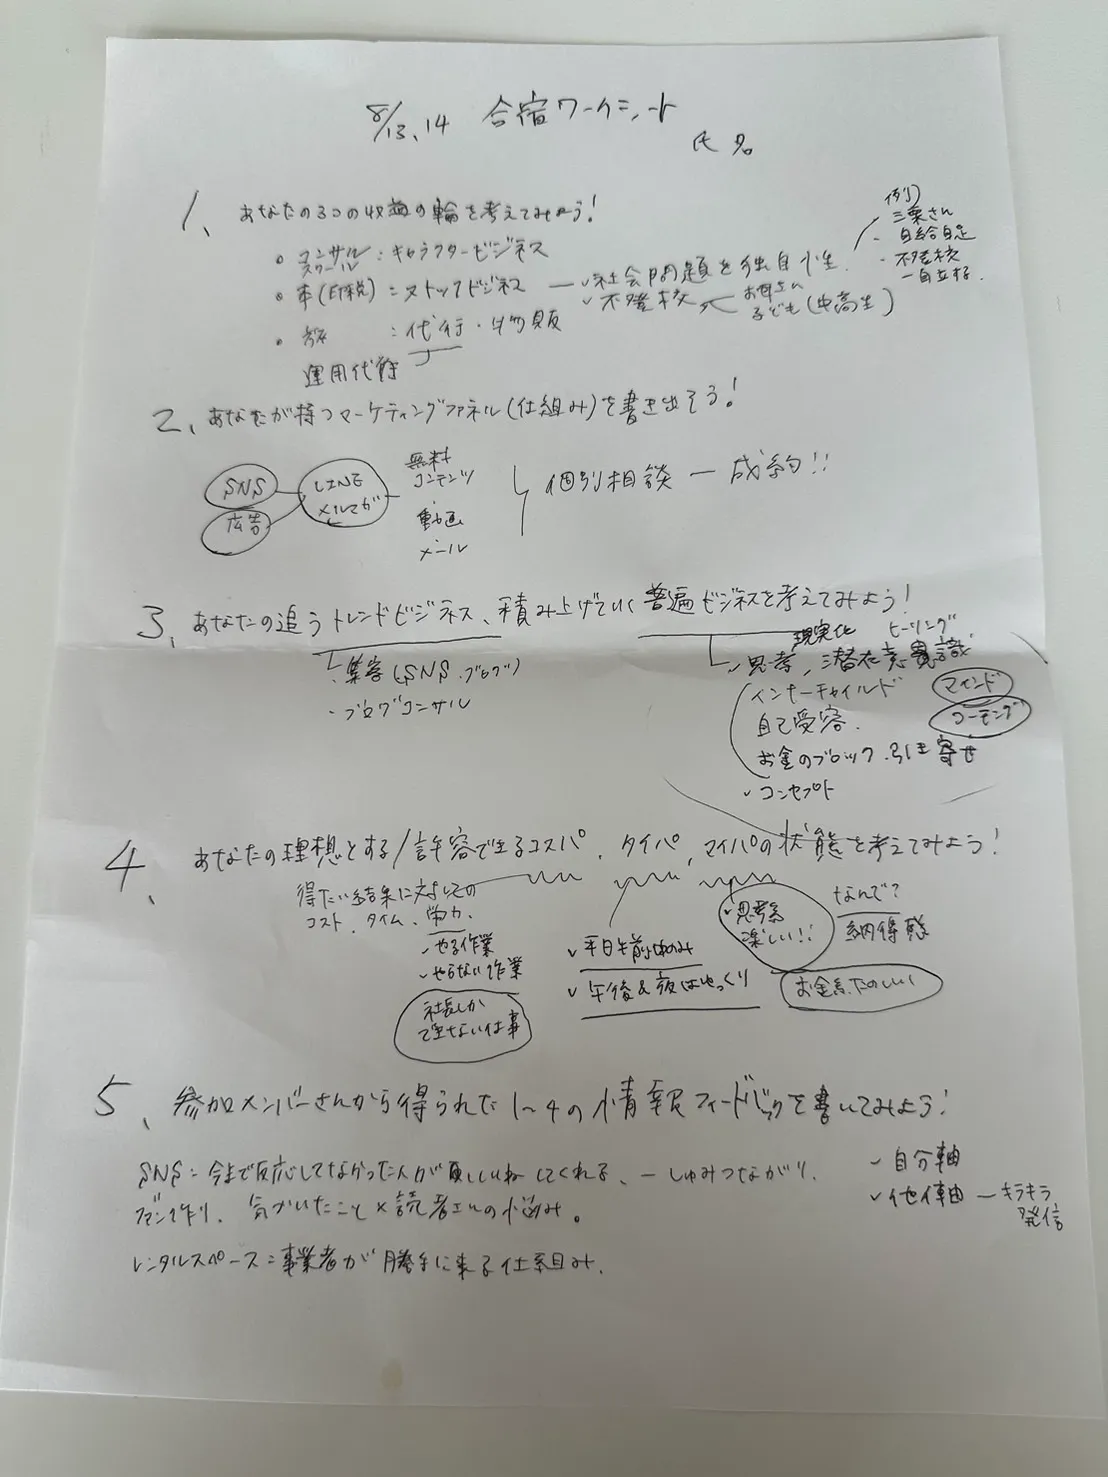 8/13、14 合宿ワークシート
氏名
1、あなたの3つの収益の輪を考えてみよう!
例)
三栗さん
・自給自足
・不登校
ー自立する.
・コンサル
スクール:キャラクタービジネス
・本(印税):ストックビジネス ー ✓社会問題を独自性
✓不登校 お母さん
子ども(中高生)
:代行・物販
運用代行
2、あなたが持つマーケティングファネル(仕組み)を書き出そう!
SNS
広告
LINE
メルマガ
無料
コンテンツ
動画
メール
個別相談 ー 成約!!
3、あなたの追うトレンドビジネス、積み上げていく普遍ビジネスを考えてみよう!
・集客(SNS、ブログ)
・ブログコンサル
現実化 ヒーリング
✓思考、潜在意識
インナーチャイルド
自己受容.
お金のブロック、引き寄せ
マインド
コーチング
✓コンセプト
4、あなたの理想とする/許容できるコスパ、タイパ、マイパの状態を考えてみよう!
得たい結果に対しての
コスト、タイム、労力.
✓やる作業
✓やらない作業
社長しか
できない仕事
✓平日午前中のみ
✓午後&夜はゆっくり
✓思考系
楽しい!!
なんで?
納得感
お金系たのしい
5、参加メンバーさんから得られた1〜4の情報フィードバックを書いてみよう!
SNS:今まで反応してなかった人がいいねしてくれる、ーしゅみつながり.
ファン作り、気づいたこと×読者さんの悩み。
✓自分軸
✓他軸 ー キラキラ
発信
レンタルスペース:事業者が勝手に来る仕組み.